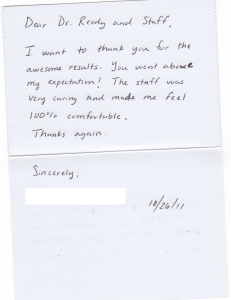 Dear Dr. Reedy and Staff,
I want to thank you for the
awesome results. You went above
my expectation! The staff was
very caring and made me feel
100% comfortable.
Thanks again.
Sincerely,
10/26/11